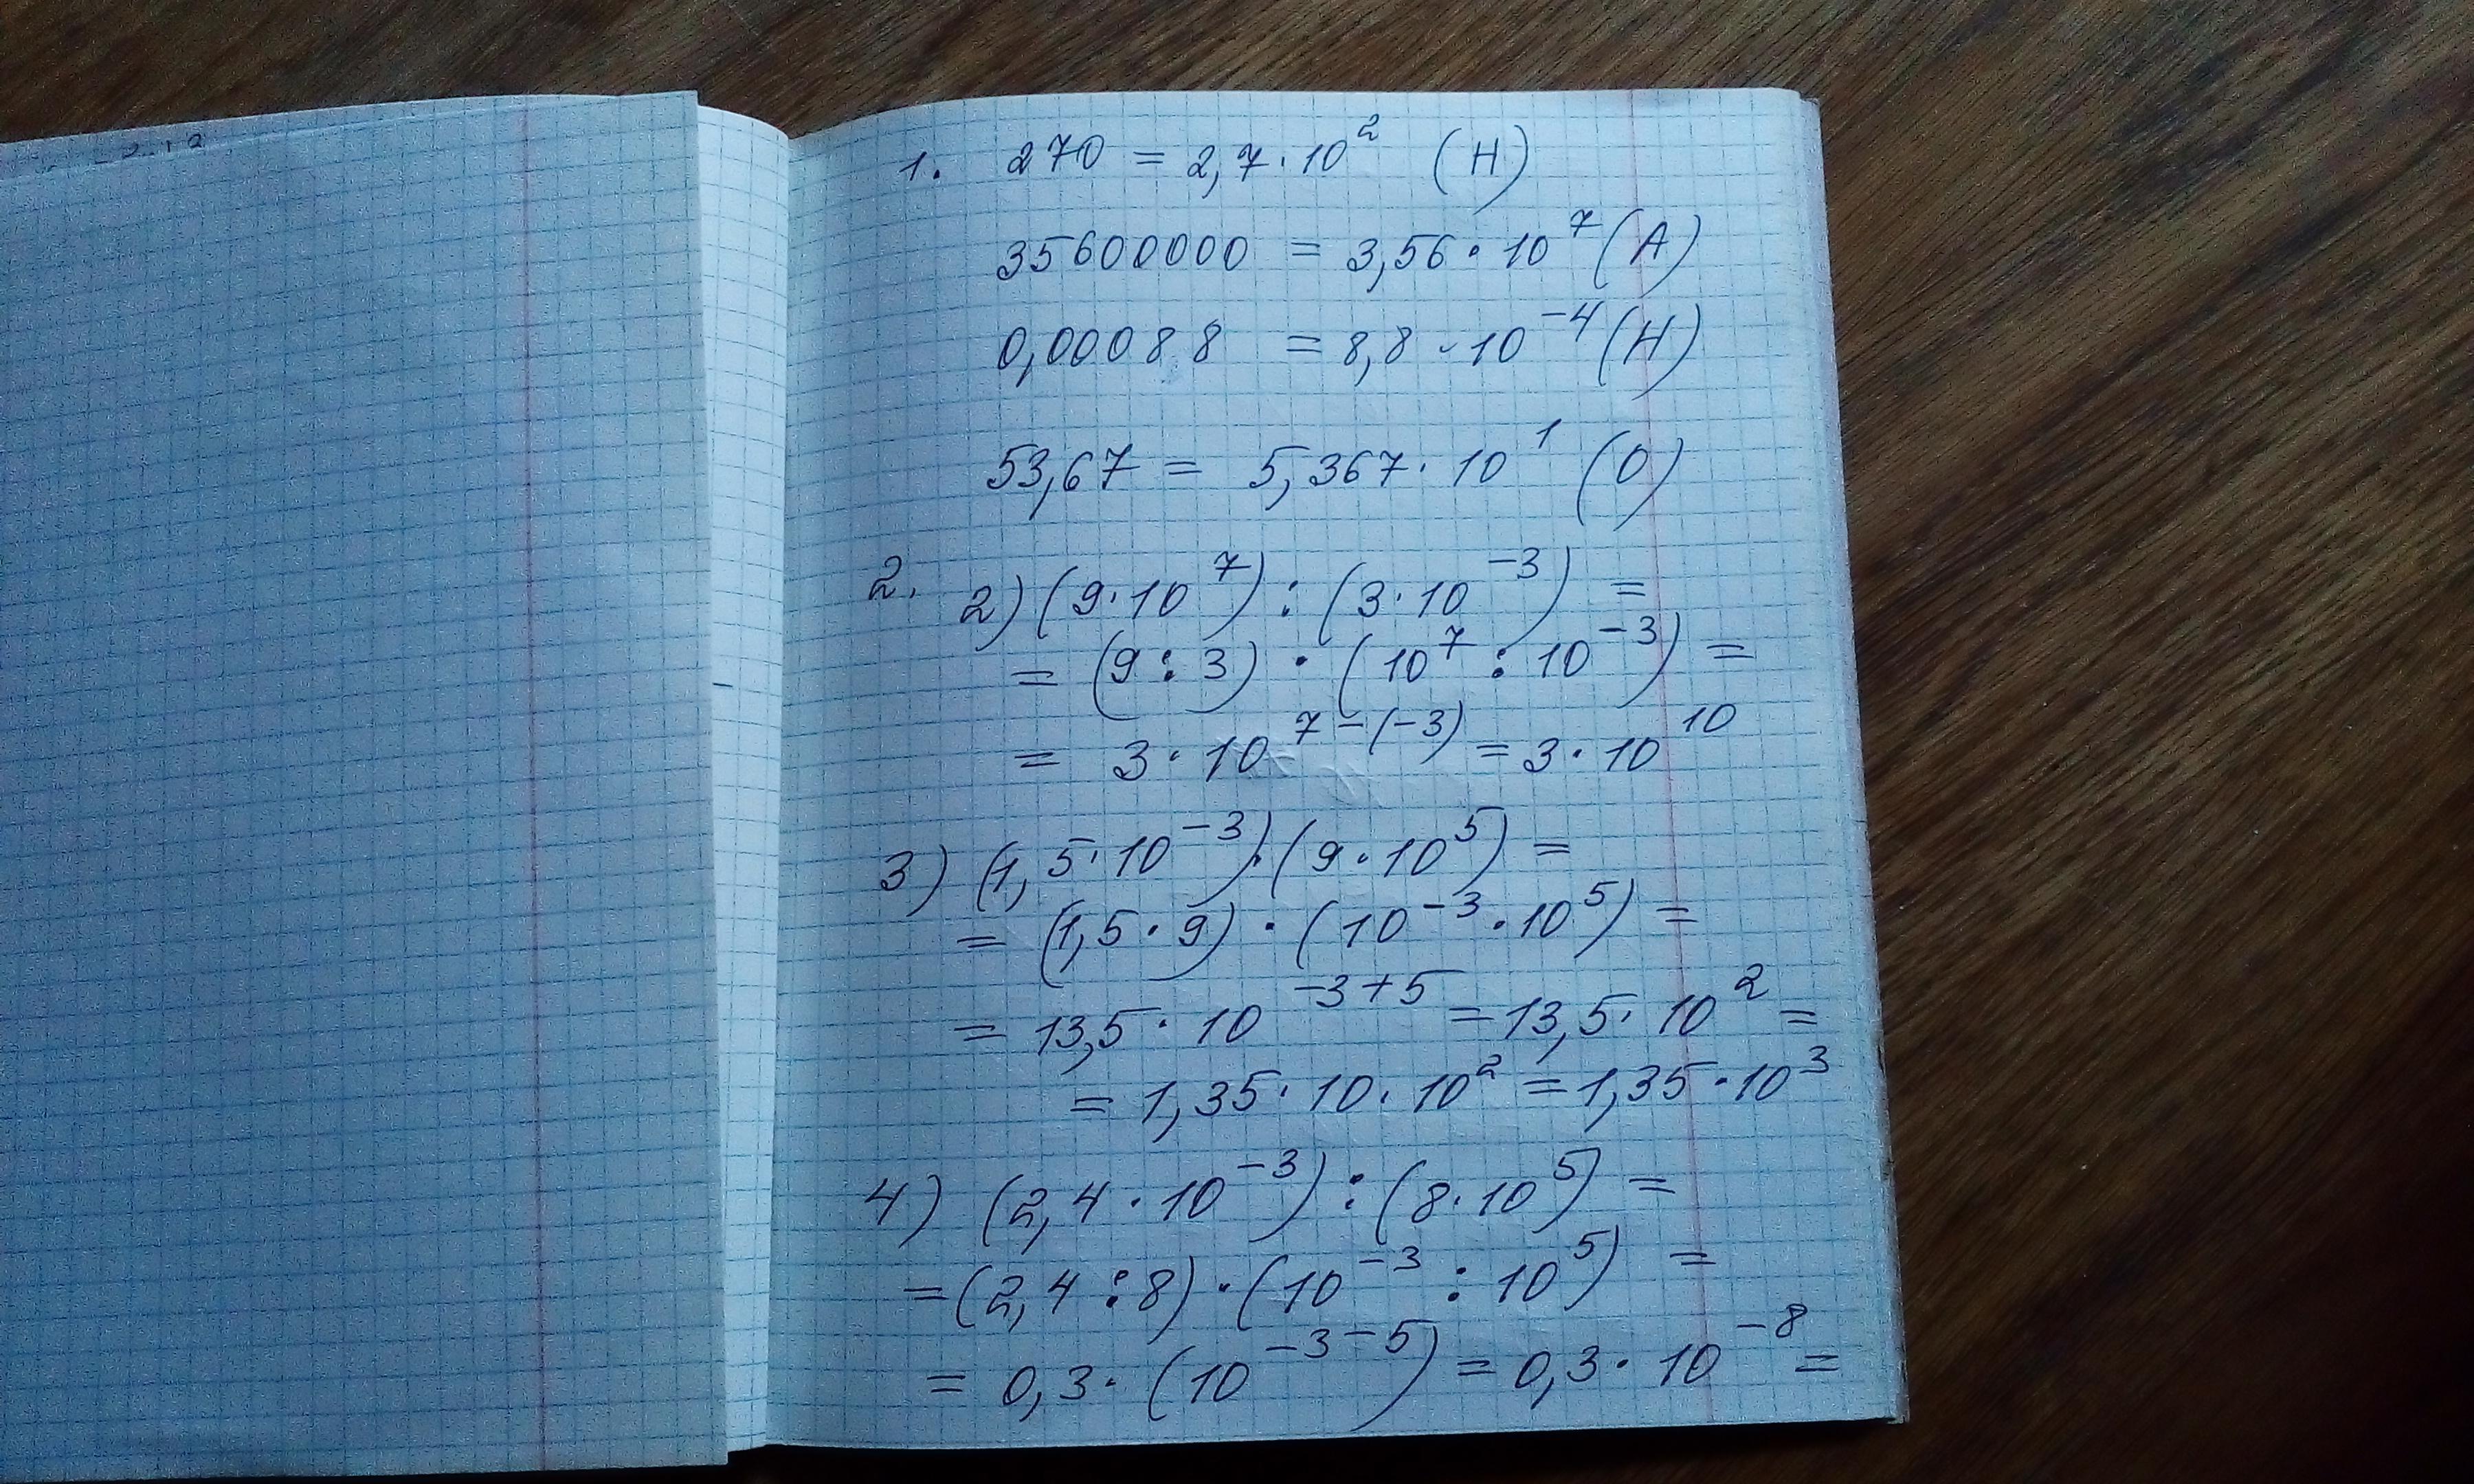 1. 270 = 2,7·10² (Н)
35600000 = 3,56·10⁷ (А)
0,00088 = 8,8·10⁻⁴ (Н)
53,67 = 5,367·10¹ (О)
2. 2) (9·10⁷) : (3·10⁻³) =
= (9 : 3) · (10⁷ : 10⁻³) =
= 3·10⁷⁻⁽⁻³⁾ = 3·10¹⁰
3) (1,5·10⁻³)·(9·10⁵) =
= (1,5·9)·(10⁻³·10⁵) =
= 13,5·10⁻³⁺⁵ = 13,5·10² =
= 1,35·10·10² = 1,35·10³
4) (2,4·10⁻³) : (8·10⁵) =
= (2,4 : 8)·(10⁻³ : 10⁵) =
= 0,3·(10⁻³⁻⁵) = 0,3·10⁻⁸ =